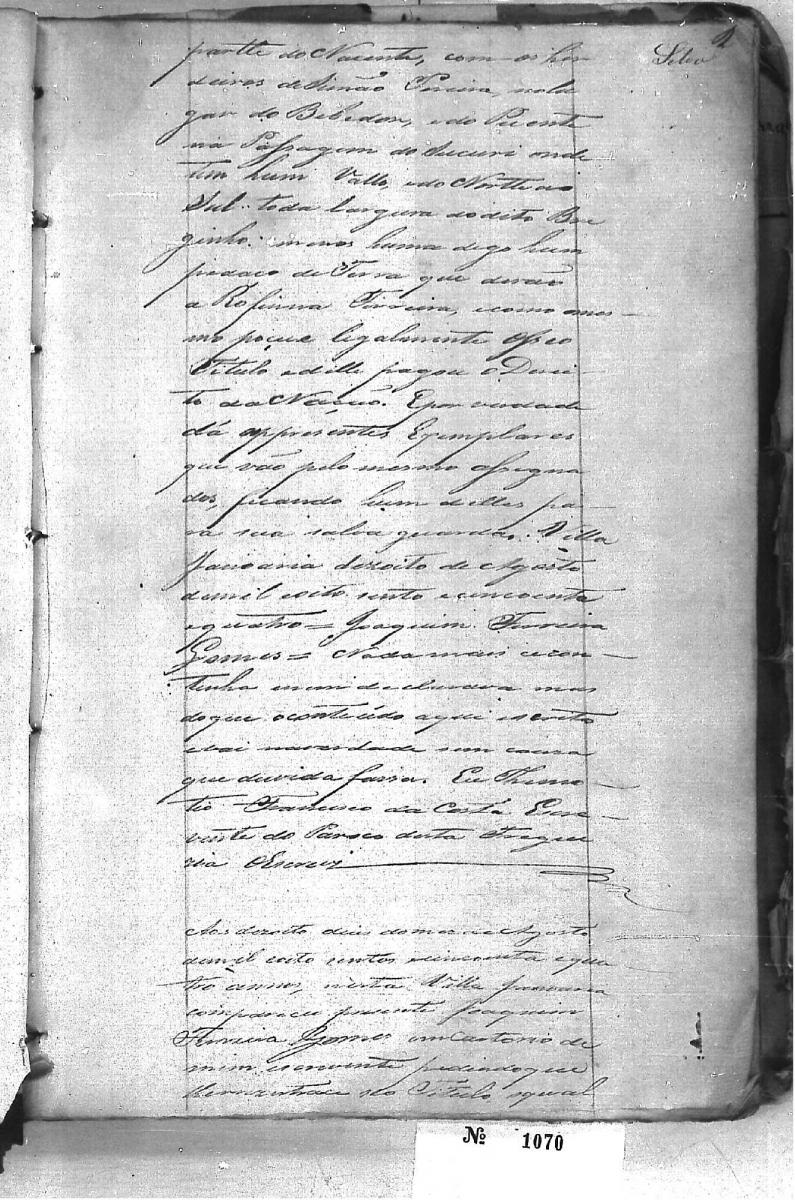 2
partte do Nacente, com os her
deiros de Simão Pereira, no lu
gar do Bebedor, e do Poente
na Passagem do Sucuri onde
tem hum Vallo, e do Nortte ao
Sul toda largura do dito Bre
ginho: menos huma digo hum
pedaço de Terra que derão
a Rofinna Ferreira, e como o mes-
mo poçue legalmente esse o
Titulo e delle pagou o Direi
to da Nacão. E por verdade
dá os presentes Exemplares
que vão pelo mesmo assigna
dos, ficando hum delles pa-
ra sua salva guarda. Villa
Januaria dezoito de Agosto
de mil eoito sento e cincoenta
e quatro = Joaquim Ferreira
Gomes = Nada mais se con-
tinha nem declarava mas
do que o conteúdo aqui escrito
e vai na verdade sem couza
que duvida fassa. Eu Themo-
tio Francisco da Costa Escre-
vente do Paroco desta Fregue
zia o Escrevi
Aos dezoito dias do mes de Agosto
de mil eoito centos e cincoenta e qua
tro annos, nesta Villa Januaria
compareceu presente Joaquim
Ferreira Gomes em Cartorio de
mim escrevente pedindo que
lhe rezistrace seo Titulo o qual
Nº 1070